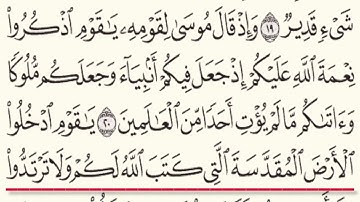 شَىْءٍ قَدِيرٌ ١٩ وَإِذْ قَالَ مُوسَىٰ لِقَوْمِهِۦ يَـٰقَوْمِ ٱذْكُرُوا۟
نِعْمَةَ ٱللَّهِ عَلَيْكُمْ إِذْ جَعَلَ فِيكُمْ أَنۢبِيَآءَ وَجَعَلَكُم مُّلُوكًا
وَءَاتَىٰكُم مَّا لَمْ يُؤْتِ أَحَدًا مِّنَ ٱلْعَـٰلَمِينَ ٢٠ يَـٰقَوْمِ ٱدْخُلُوا۟
ٱلْأَرْضَ ٱلْمُقَدَّسَةَ ٱلَّتِى كَتَبَ ٱللَّهُ لَكُمْ وَلَا تَرْتَدُّوا۟